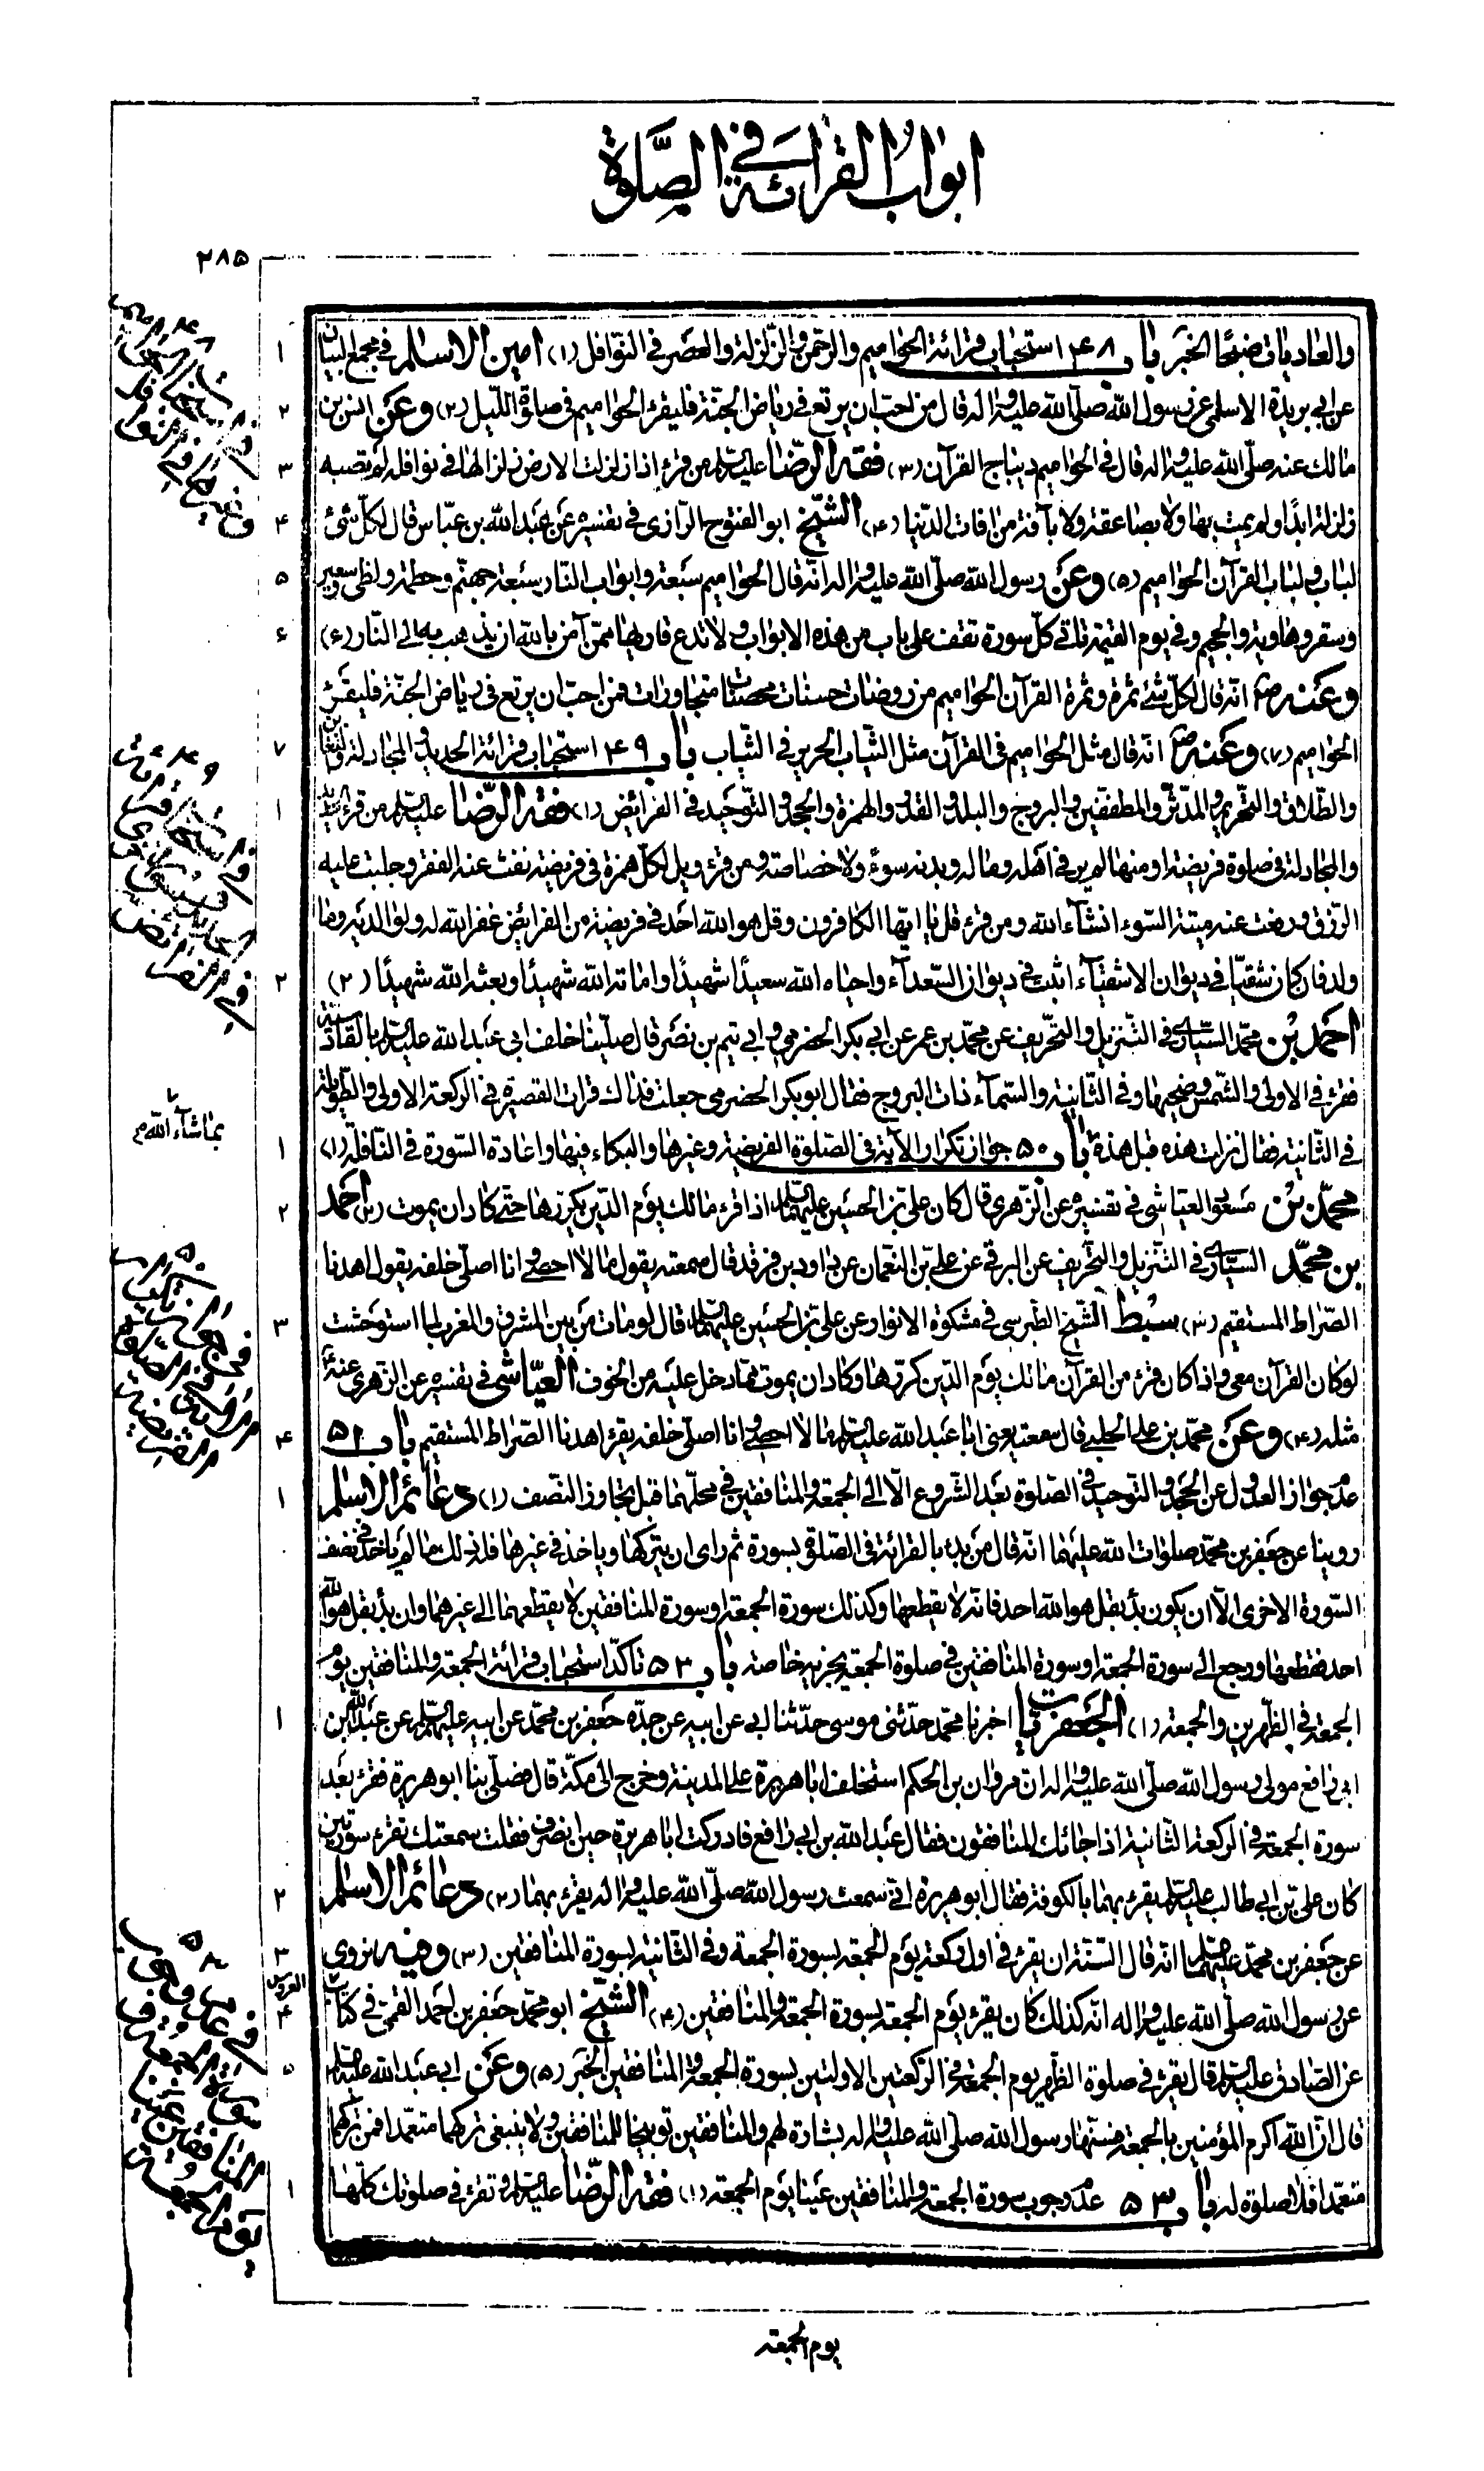 ابواب القرائة في الصلوة
٢٨٥
والعاديات ضبحًا الخبر باب ۴۸ استحباب قرائة الحواميم والرحمن والزلزلة والعصر في النوافل (١) امين الاسلام في مجمع البيان
عن ابي بريدة الاسلمي عن رسول الله صلّى الله عليه واله قال من احبّ ان يرتع في رياض الجنّة فليقرء الحواميم في صلوة الليل (٢) وعن انس بن
مالك عنه صلّى الله عليه واله قال في الحواميم ديباج القرآن (٣) فقه الرضا عليه السلم من قرء اذا زلزلت الارض زلزالها في نوافله لم تصبه
زلزلة ابدًا ولم يمت بها ولا بصاعقة ولا بآفة من افات الدنيا (۴) الشيخ ابو الفتوح الرازي في تفسيره عن عبد الله بن عباس قال لكل شئ
لباب ولباب القرآن الحواميم (۵) وعن رسول الله صلّى الله عليه واله انه قال الحواميم سبعة وابواب النار سبعة جهنم وحطمة ولظى وسعير
وسقر وهاوية والجحيم وفي يوم القيمة تاتي كل سورة تقف على باب من هذه الابواب ولا تدع قاريها ممّن آمن بالله ان يذهب به الى النار (۶)
وعنه ص انه قال لكل شئ ثمرة وثمرة القرآن الحواميم من روضات حسنات محصنات متجاورات فمن احبّ ان يرتع في رياض الجنة فليقرء
الحواميم (٧) وعنه ص انه قال مثل الحواميم في القرآن مثل الثياب الحرير في الثياب باب ۴٩ استحباب قرائة الحديد والمجادلة والتغابن
والطلاق والتحريم والمدثر والمطففين والبروج والبلد والقدر والهمزة والجحد والتوحيد في الفرائض (١) فقه الرضا عليه السلم من قرء الحديد
والمجادلة في صلوة فريضة او منها لم ير في اهله وماله وبدنه سوءً ولا خصاصة ومن قرء ويل لكل همزة في فريضة نفت عنه الفقر وجلبت عليه
الرزق ودفعت عنه ميتة السوء انشاء الله ومن قرء قل يا ايها الكافرون وقل هو الله احد في فريضة من الفرائض غفر الله له ولوالديه وما
ولد فان كان شقيا في ديوان الاشقياء اثبت في ديوان السعداء واحياه الله سعيدًا شهيدًا واماته الله شهيدًا وبعثه الله شهيدًا (٢)
احمد بن محمد السياري في التنزيل والتحريف عن محمد بن عمر عن ابي بكر الحضرمي وابي تيم بن نصر قال صلينا خلف ابي عبد الله عليه السلم بالقادسية
فقرء في الاولى والشمس وضحيها وفي الثانية والسماء ذات البروج فقال ابو بكر الحضرمي جعلت فداك قرات القصيرة في الركعة الاولى والطويلة
في الثانية فقال نزلت هذه قبل هذه باب ۵٠ جواز تكرار الآية في الصلوة الفريضة وغيرها والبكاء فيها واعادة السورة في النافلة (١)
محمد بن مسعود العياشي في تفسيره عن الزهري قال كان علي بن الحسين عليهما السلم اذا قرء مالك يوم الدين يكررها حتى كاد ان يموت (٢) احمد
بن محمد السياري في التنزيل والتحريف عن البرقي عن علي بن النعمان عن داود بن فرقد قال سمعته يقول ما لا احصي وانا اصلي خلفه يقول اهدنا
الصراط المستقيم (٣) سبط الشيخ الطبرسي في مشكوة الانوار عن علي بن الحسين عليهما السلم قال لو مات من بين المشرق والمغرب لما استوحشت
لو كان القرآن معي واذا كان قرء من القرآن مالك يوم الدين كررها وكاد ان يموت مما دخل عليه من الخوف العياشي في تفسيره عن الزهري عنه
مثله (۴) وعن محمد بن علي الحلبي قال سمعته يعني ابا عبد الله عليه السلم ما لا احصي وانا اصلي خلفه يقرء اهدنا الصراط المستقيم باب ۵١
عدم جواز العدول عن الجحد والتوحيد في الصلوة بعد الشروع الّا الى الجمعة والمنافقين في محلهما قبل تجاوز النصف (١) دعائم الاسلام
روينا عن جعفر بن محمد صلوات الله عليهما انه قال من بدء بالقرائة في الصلوة بسورة ثم راى ان يتركها وياخذ في غيرها فله ذلك ما لم ياخذ في نصف
السورة الاخرى الّا ان يكون بدء بقل هو الله احد فانه لا يقطعها وكذلك سورة الجمعة او سورة المنافقين لا يقطعهما الى غيرهما وان بدء بقل هو الله
احد فقطعها ورجع الى سورة الجمعة او سورة المنافقين في صلوة الجمعة يجزيه خاصة باب ۵٢ تاكد استحباب قرائة الجمعة والمنافقين يوم
الجمعة في الظهرين والجمعة (١) الجعفريات اخبرنا محمد حدثني موسى حدثنا ابي عن ابيه عن جده جعفر بن محمد عن ابيه عليهم السلم عن عبد الله بن
ابي رافع مولى رسول الله صلّى الله عليه واله ان مروان بن الحكم استخلف ابا هريرة على المدينة وخرج الى مكة قال فصلى بنا ابو هريرة فقرء بعد
سورة الجمعة في الركعة الثانية اذا جائك المنافقون فقال عبد الله بن ابي رافع فادركت ابا هريرة حين انصرف فقلت سمعتك تقرء سورتين
كان علي بن ابي طالب عليه السلم يقرء بهما بالكوفة فقال ابو هريرة اني سمعت رسول الله صلّى الله عليه واله يقرء بهما (٢) دعائم الاسلام
عن جعفر بن محمد عليهما السلم انه قال السنة ان يقرء في اول ركعة يوم الجمعة بسورة الجمعة وفي الثانية بسورة المنافقين (٣) وفيه نروي
عن رسول الله صلّى الله عليه واله انه كذلك كان يقرء يوم الجمعة بسورة الجمعة والمنافقين (۴) الشيخ ابو محمد جعفر بن احمد القمي في كتاب العروس
عن الصادق عليه السلم قال يقرء في صلوة الظهر يوم الجمعة في الركعتين الاولتين بسورة الجمعة والمنافقين الخبر (۵) وعن ابي عبد الله عليه السلم
قال ان الله اكرم المؤمنين بالجمعة فسنها رسول الله صلّى الله عليه واله بشارة لهم والمنافقين توبيخا للمنافقين ولا ينبغي تركهما متعمدا فمن تركهما
متعمدا فلا صلوة له باب ۵٣ عدم وجوب سورة الجمعة والمنافقين عينا يوم الجمعة (١) فقه الرضا عليه السلم وتقرء في صلوتك كلها
بماشاء الله م
يوم الجمعة